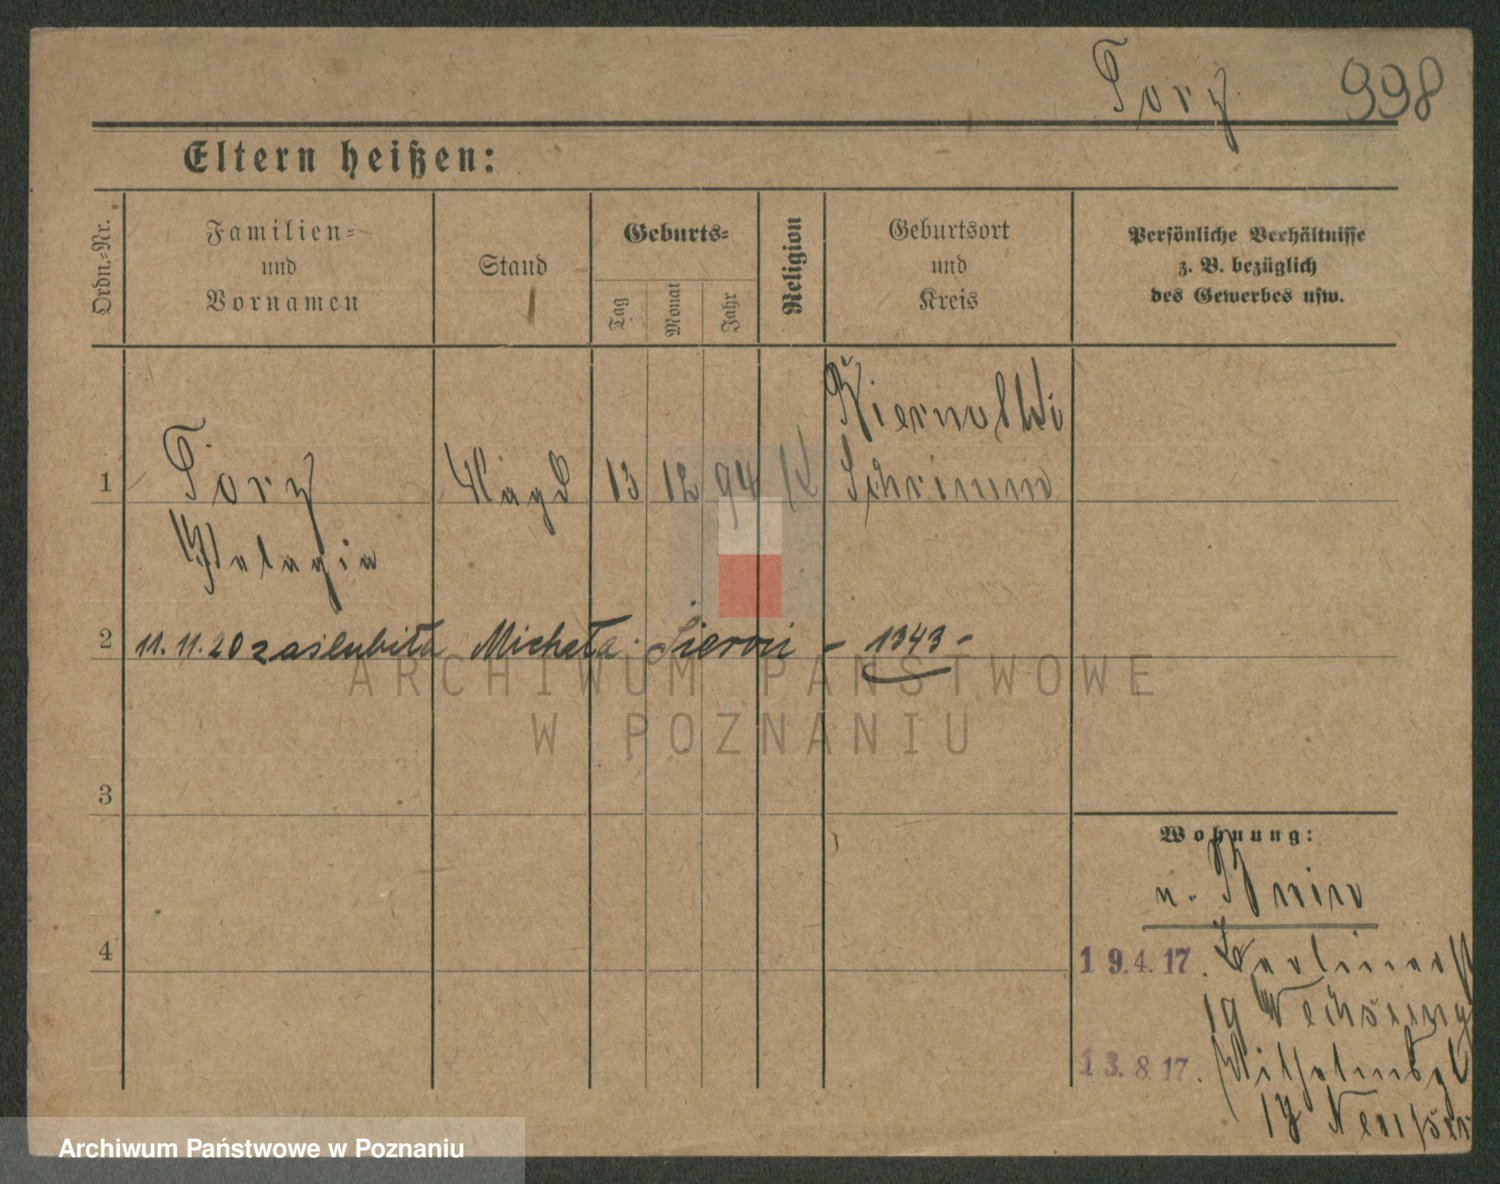 Torz 998
Eltern heißen:
Ordn.-Nr.
Familien-
und
Vornamen
Stand
Geburts-
Tag
Monat
Jahr
Religion
Geburtsort
und
Kreis
Persönliche Verhältnisse
z. B. bezüglich
des Gewerbes usw.
1 Torz Magd 13 12 94 K Schrimm
Pelagia
2 11.11.20 zaślubiła Michała - 1343 -
ARCHIWUM PAŃSTWOWE
W POZNANIU
3
Wohnung:
v. Bnin
4
19.4.17. Berlinerst
19
13.8.17. Wilhelmspl
Archiwum Państwowe w Poznaniu